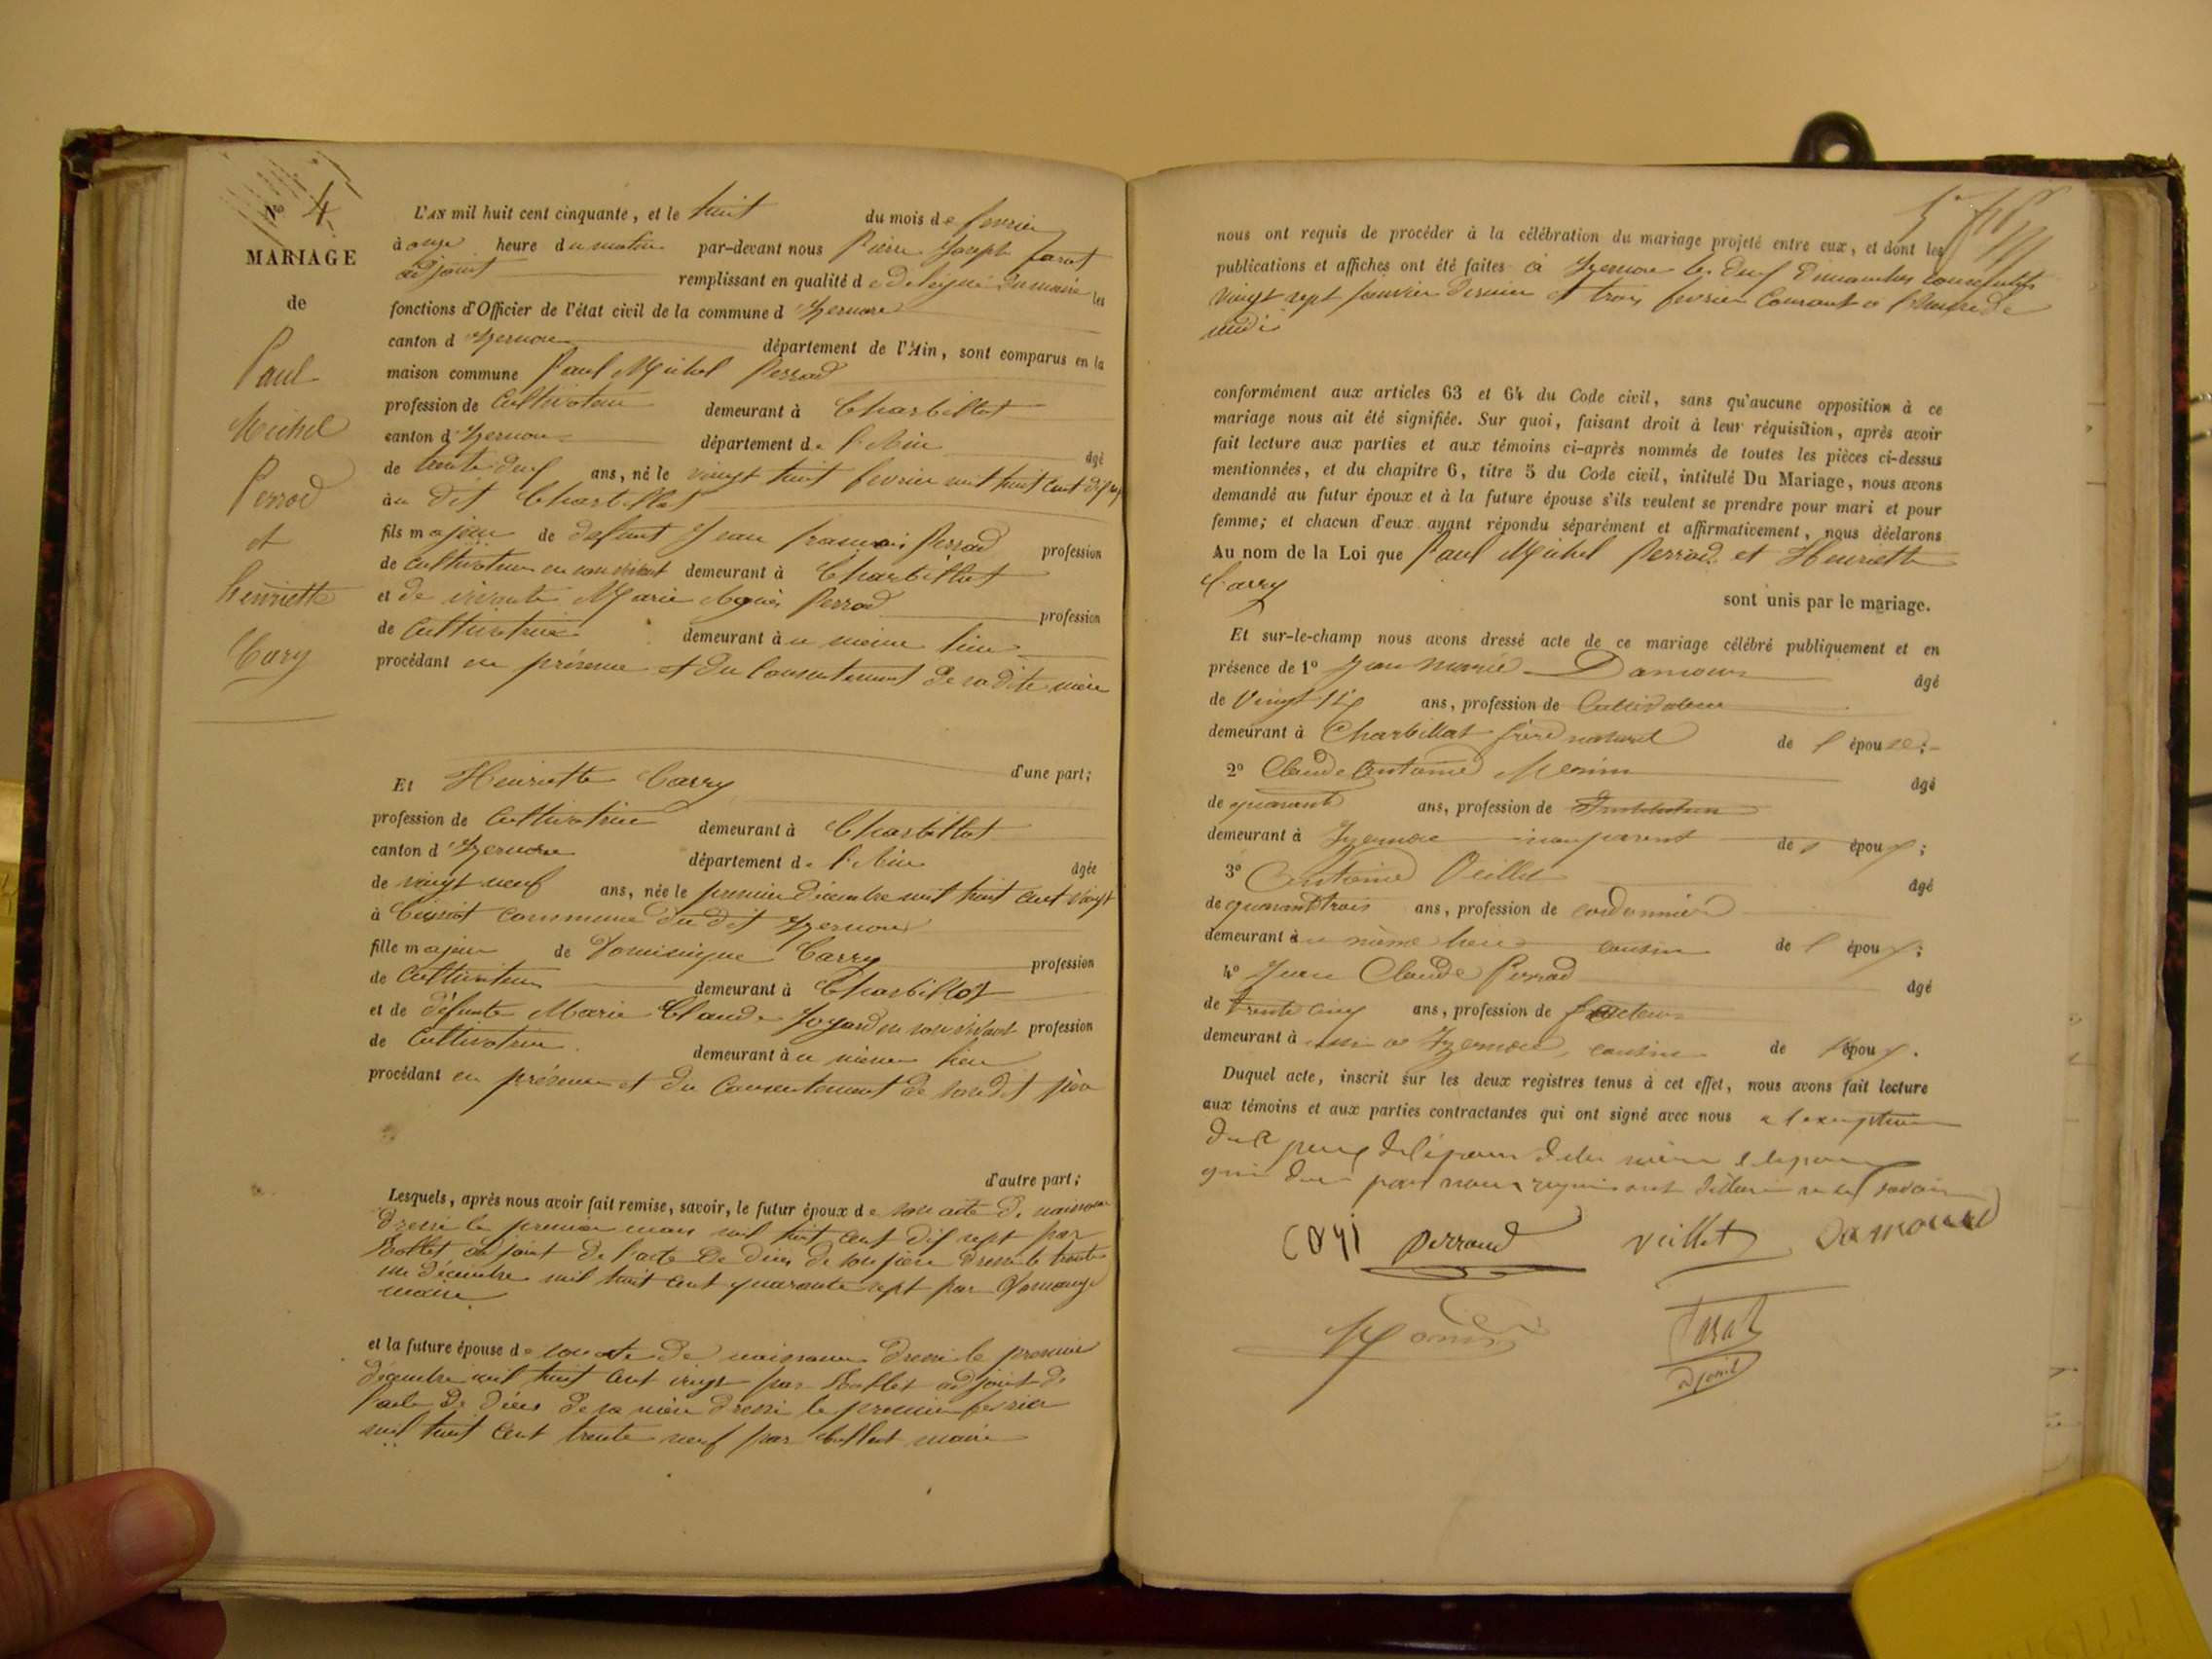 Nº 4
MARIAGE
de
Paul
Michel
Perrod
et
henriette
Cary
L'AN mil huit cent cinquante, et le huit du mois de fevrier
à onze heure du matin par-devant nous Pierre Joseph farat
adjoint remplissant en qualité de délégué du maire les
fonctions d'Officier de l'état civil de la commune d'Izernore
canton d'Izernore département de l'Ain, sont comparus en la
maison commune Paul Michel Perrod
profession de Cultivateur demeurant à Charbillat
canton d'Izernore département de l'Ain âgé
de trente deux ans, né le vingt huit fevrier mil huit cent dix sept
au dit Charbillat
fils majeur de defunt Jean francois Perrod profession
de cultivateur en son vivant demeurant à Charbillat
et de vivante Marie Perrod profession
de Cultivatrice demeurant à u même lieu
procédant en présence et du Consentement de sa dite mère
d'une part;
Et Henriette Carry
profession de Cultivatrice demeurant à Charbillat
canton d'Izernore département de l'Ain âgée
de vingt neuf ans, née le premier décembre mil huit cent vingt
à Ceissiat commune du dit Izernore
fille majeure de Dominique Carry profession
de Cultivateur demeurant à Charbillat
et de défunte Marie Claude Joyard en son vivant profession
de Cultivatrice demeurant à u même lieu
procédant en présence et du Consentement de son dit père
d'autre part;
Lesquels, après nous avoir fait remise, savoir, le futur époux de son acte de naissance
dressé le premier mars mil huit cent dix sept par
adjoint de l'acte de décès de son père dressé le trente
un décembre mil huit cent quarante sept par
maire
et la future épouse de son acte de naissance dressé le premier
décembre mil huit cent vingt par adjoint de
l'acte de décès de sa mère dressé le premier fevrier
mil huit cent trente neuf par maire
nous ont requis de procéder à la célébration du mariage projeté entre eux, et dont les
publications et affiches ont été faites à Izernore les deux dimanches consécutifs
vingt sept janvier dernier et trois fevrier Courant à l'heure de
midi
conformément aux articles 63 et 64 du Code civil, sans qu'aucune opposition à ce
mariage nous ait été signifiée. Sur quoi, faisant droit à leur réquisition, après avoir
fait lecture aux parties et aux témoins ci-après nommés de toutes les pièces ci-dessus
mentionnées, et du chapitre 6, titre 5 du Code civil, intitulé Du Mariage, nous avons
demandé au futur époux et à la future épouse s'ils veulent se prendre pour mari et pour
femme; et chacun d'eux ayant répondu séparément et affirmativement, nous déclarons
Au nom de la Loi que Paul Michel Perrod et Henriette
Carry
sont unis par le mariage.
Et sur-le-champ nous avons dressé acte de ce mariage célébré publiquement et en
présence de 1º Jean marie Damour âgé
de Vingt six ans, profession de Cultivateur
demeurant à Charbillat frère naturel de l'épouse;
2º Claude Antoine Monin âgé
de quarante ans, profession de Instituteur
demeurant à Izernore non parent de l époux;
3º Antoine Veillet âgé
de quarant trois ans, profession de cordonnier
demeurant à u même lieu cousin de l époux;
4º Jean Claude Perrod âgé
de trente cinq ans, profession de facteur
demeurant à aussi à Izernore, cousin de l'époux.
Duquel acte, inscrit sur les deux registres tenus à cet effet, nous avons fait lecture
aux témoins et aux parties contractantes qui ont signé avec nous a l'exception
de l'époux de la mère
qui de par nous requis ont déclaré ne le savoir
Cari Perraud Veillet Damourd
Monin
farat
adjoint